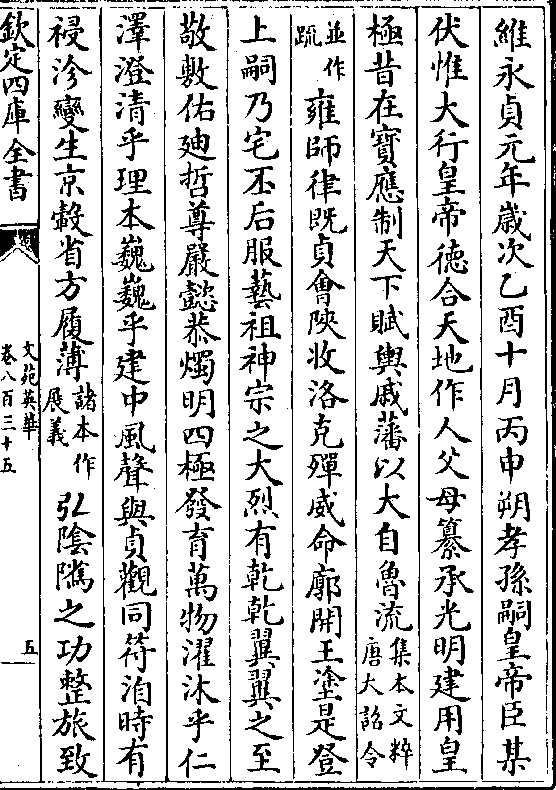 維永貞元年歳次乙酉十月丙申朔孝孫嗣皇帝臣某
伏惟大行皇帝德合天地作人父母纂承光明建用皇
極昔在寶應制天下賦輿戚藩以大自魯流集本文粹唐大詔令
並作疏雍師律既貞會陜收洛克殫威命廓開王塗是登
上嗣乃宅丕后服藝祖神宗之大烈有乾乾翼翼之至
敬敷佑廸哲尊嚴懿恭燭明四極發育萬物濯沐乎仁
澤澄清乎理本巍巍乎建中風聲與貞觀同符洎時有
祲沴變生京轂省方履薄諸本作展義弘陰隲之功整旅致
欽定四庫全書
文苑英華
卷八百三十五
五